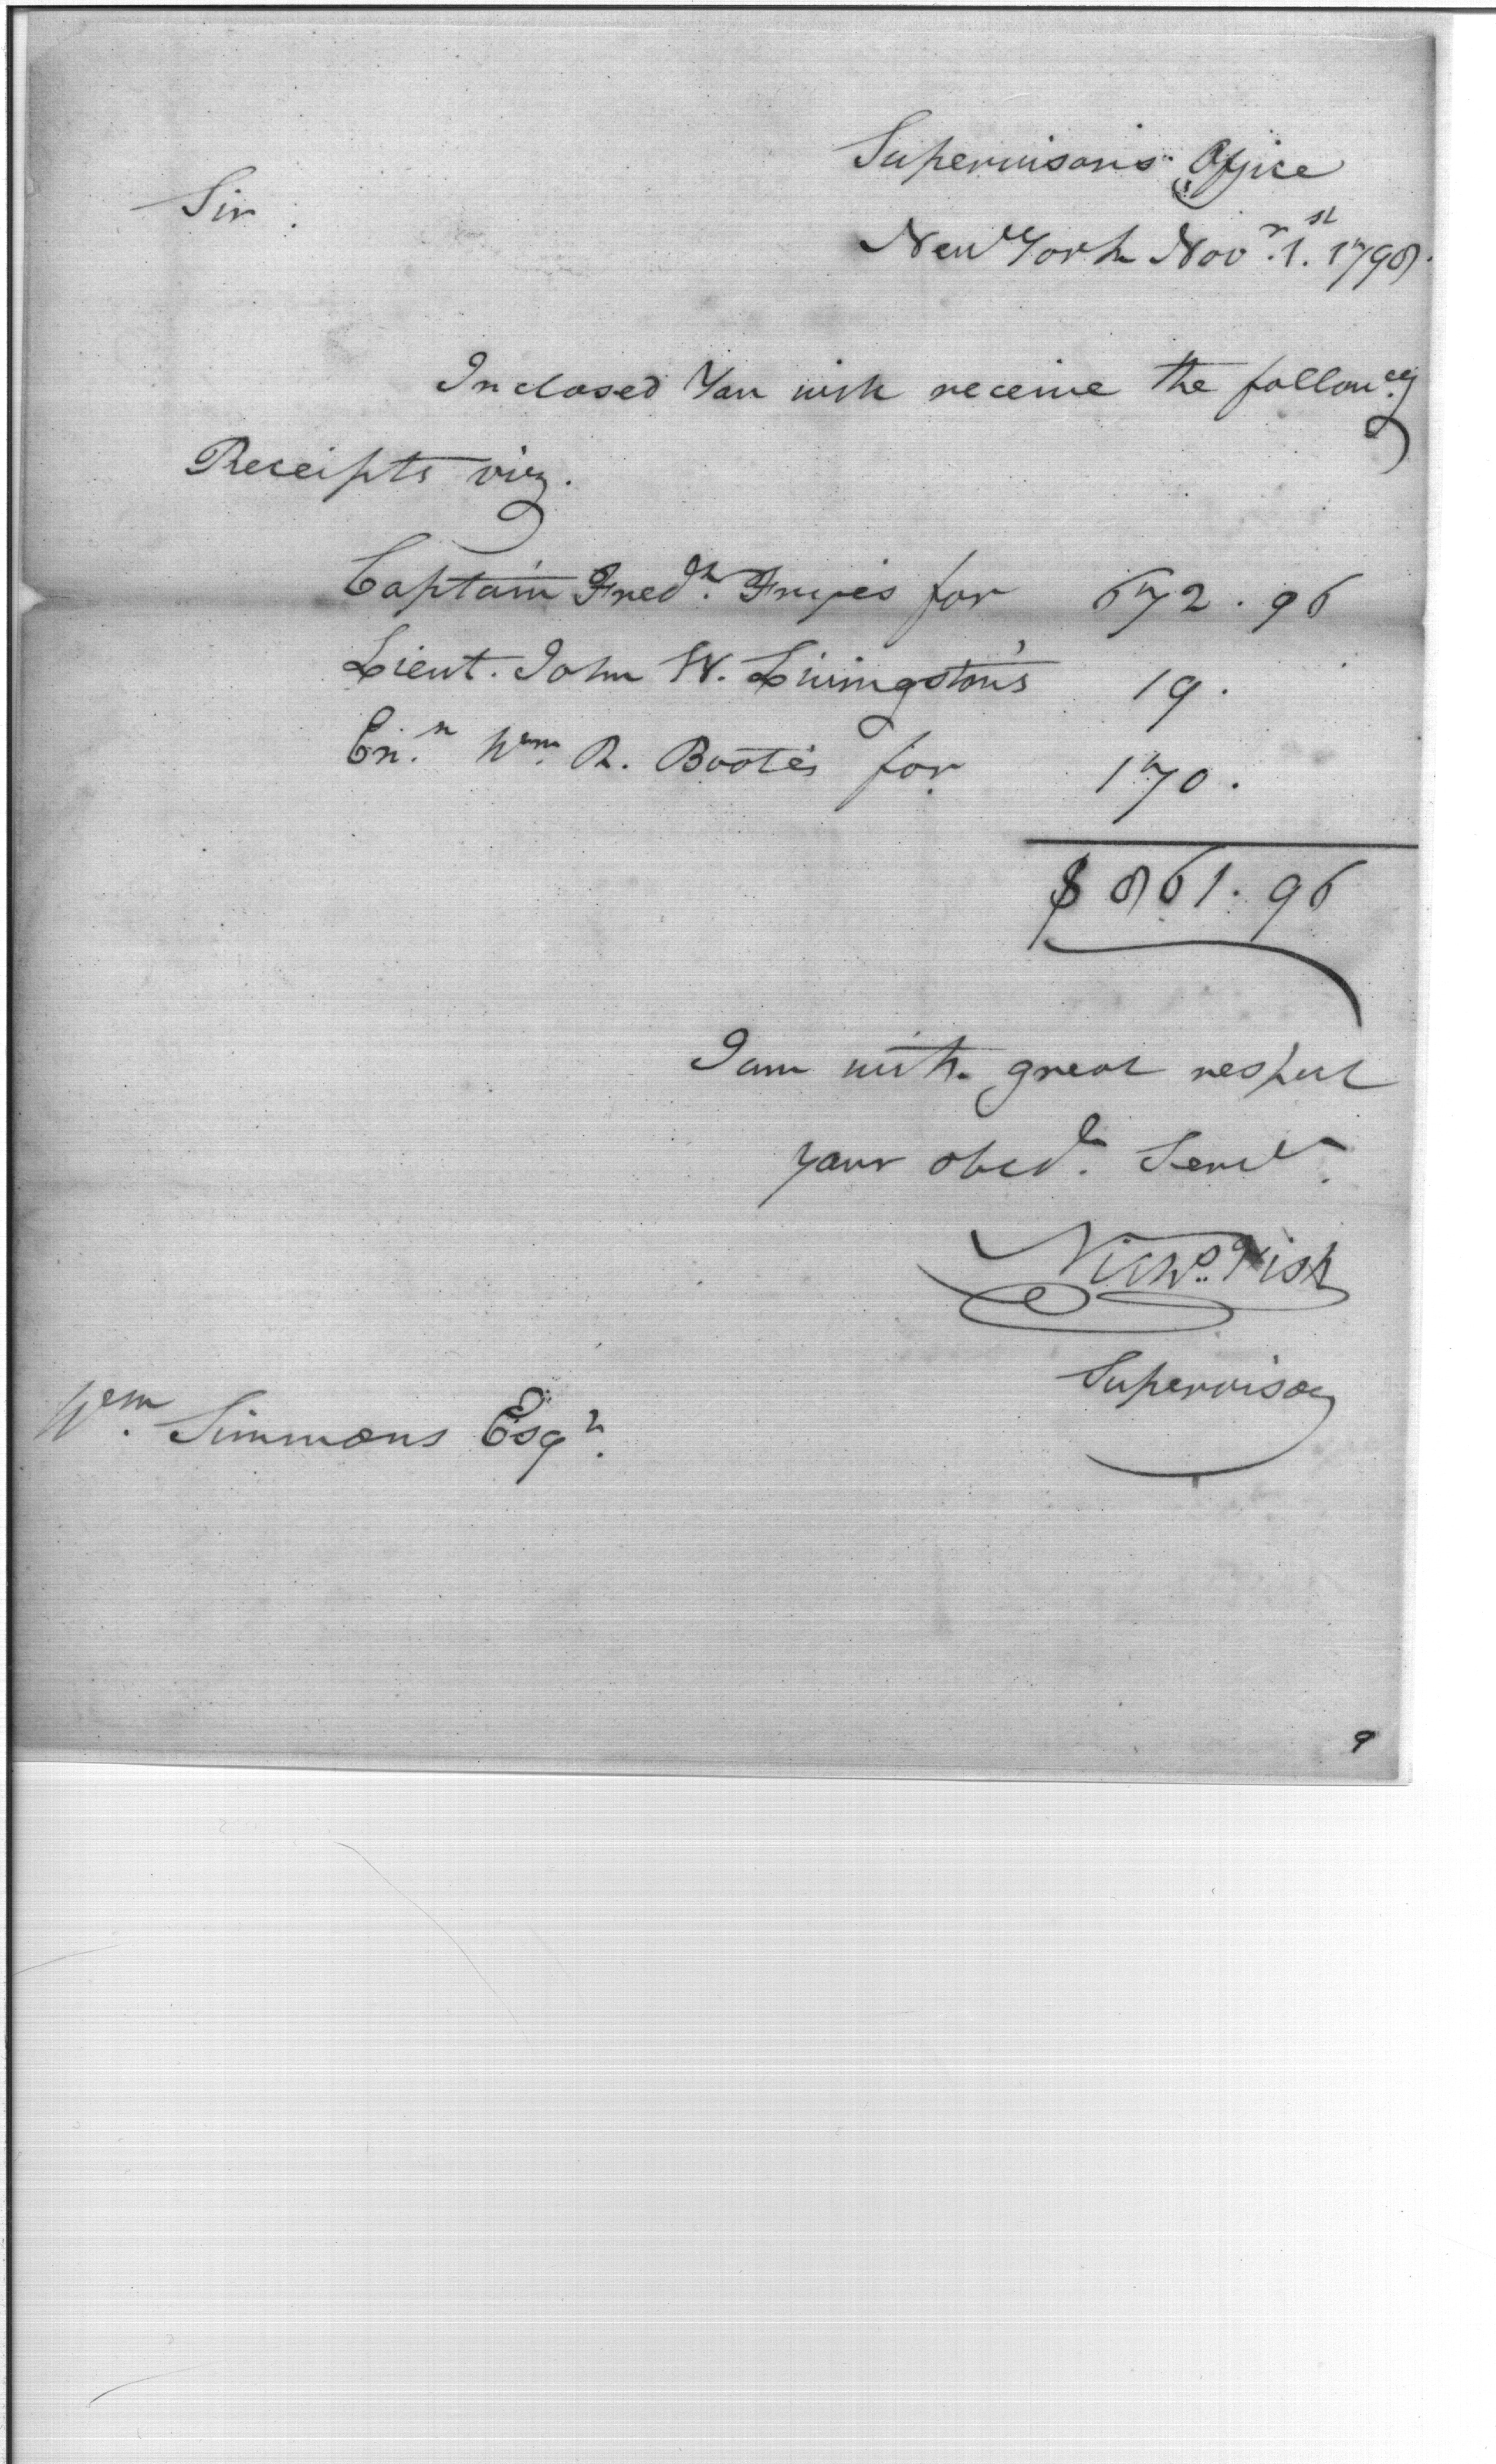 Supervisor's Office
Sir.
New York Novr. 1st. 1798.
Inclosed You will receive the followg.
Receipts viz.
Captain Fredk. Frye's for 672.96
Lieut. John W. Livingston's 19.
En.n Wm. R. Boote's for 170.
$861.96
I am with great respect
your obedt. Servt.
Nichs. Fish
Supervisor
Wm. Simmons Esqr.
9